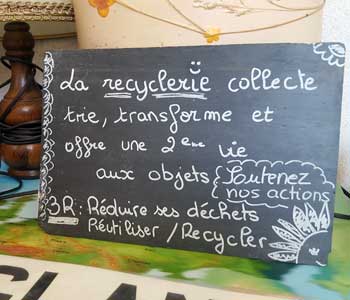 La recyclerie collecte
trie, transforme et
offre une 2eme vie
aux objets
Soutenez
nos actions
3R : Réduire ses déchets
Réutiliser / Recycler